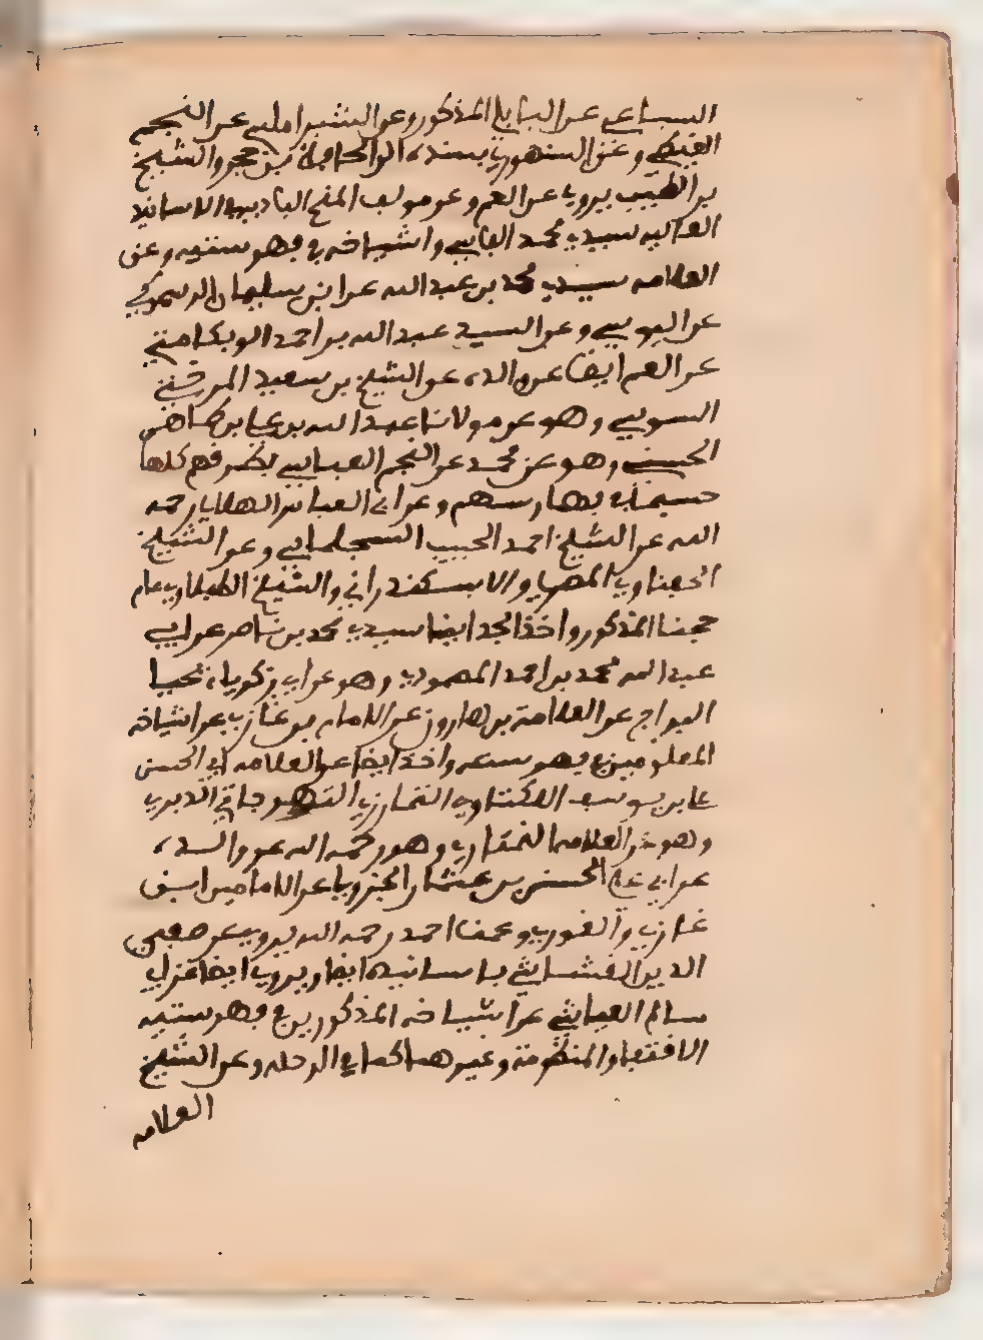 السباعي عن البابلي المذكور وعن الشبراملسي عن النجم
الغيطي وعن السنهوري بسنده الى الحافظ بن حجر والشيخ
بن الطيب يروي عن العم وعن مولف المنح البادية في الاسانيد
العاليه سيدي محمد الفاسي واشياخه في فهرسته وعن
العلامه سيدي محمد بن عبد الله عن ابن سليمان الرسموكي
عن اليوسي وعن السيد عبد الله بن احمد
عن العم ايضا عن والده عن الشيخ بن سعيد المرغيتي
السوسي وهو عن مولانا عبد الله بن علي بن طاهر
الحسني وهو عن محمد عن النجم بطرقهم كلها
حسبما في بهارسهم وعن ابي العباس الهلالي رحمه
الله عن الشيخ احمد الحبيب السجلماسي وعن الشيخ
الحفناوي المصري والاسكندراني والشيخ عام
حجنا المذكور واخذ الجد ايضا سيدي محمد بن ناصر عن ابي
عبد الله محمد بن احمد وهو عن ابي زكرياء يحيا
السراج عن العلامة بن هارون عن الامام بن غازي عن اشياخه
المعلومين في فهرسته واخذ ايضا عن العلامه ابي الحسن
علي بن يوسف الدرعي
وهو عن العلامه وهو رحمه الله عن والده
عن ابي علي الحسن بن عثمان الجزولي عن الامامين ابن
غازي و وعمنا احمد رحمه الله يروي عن صفي
الدين القشاشي باسانيده ايضا ويروي ايضا عن ابي
سالم العياشي عن اشياخه المذكورين في فهرسته
الاقتفا والمنظومة وغيرهما كما في الرحله وعن الشيخ
العلامه